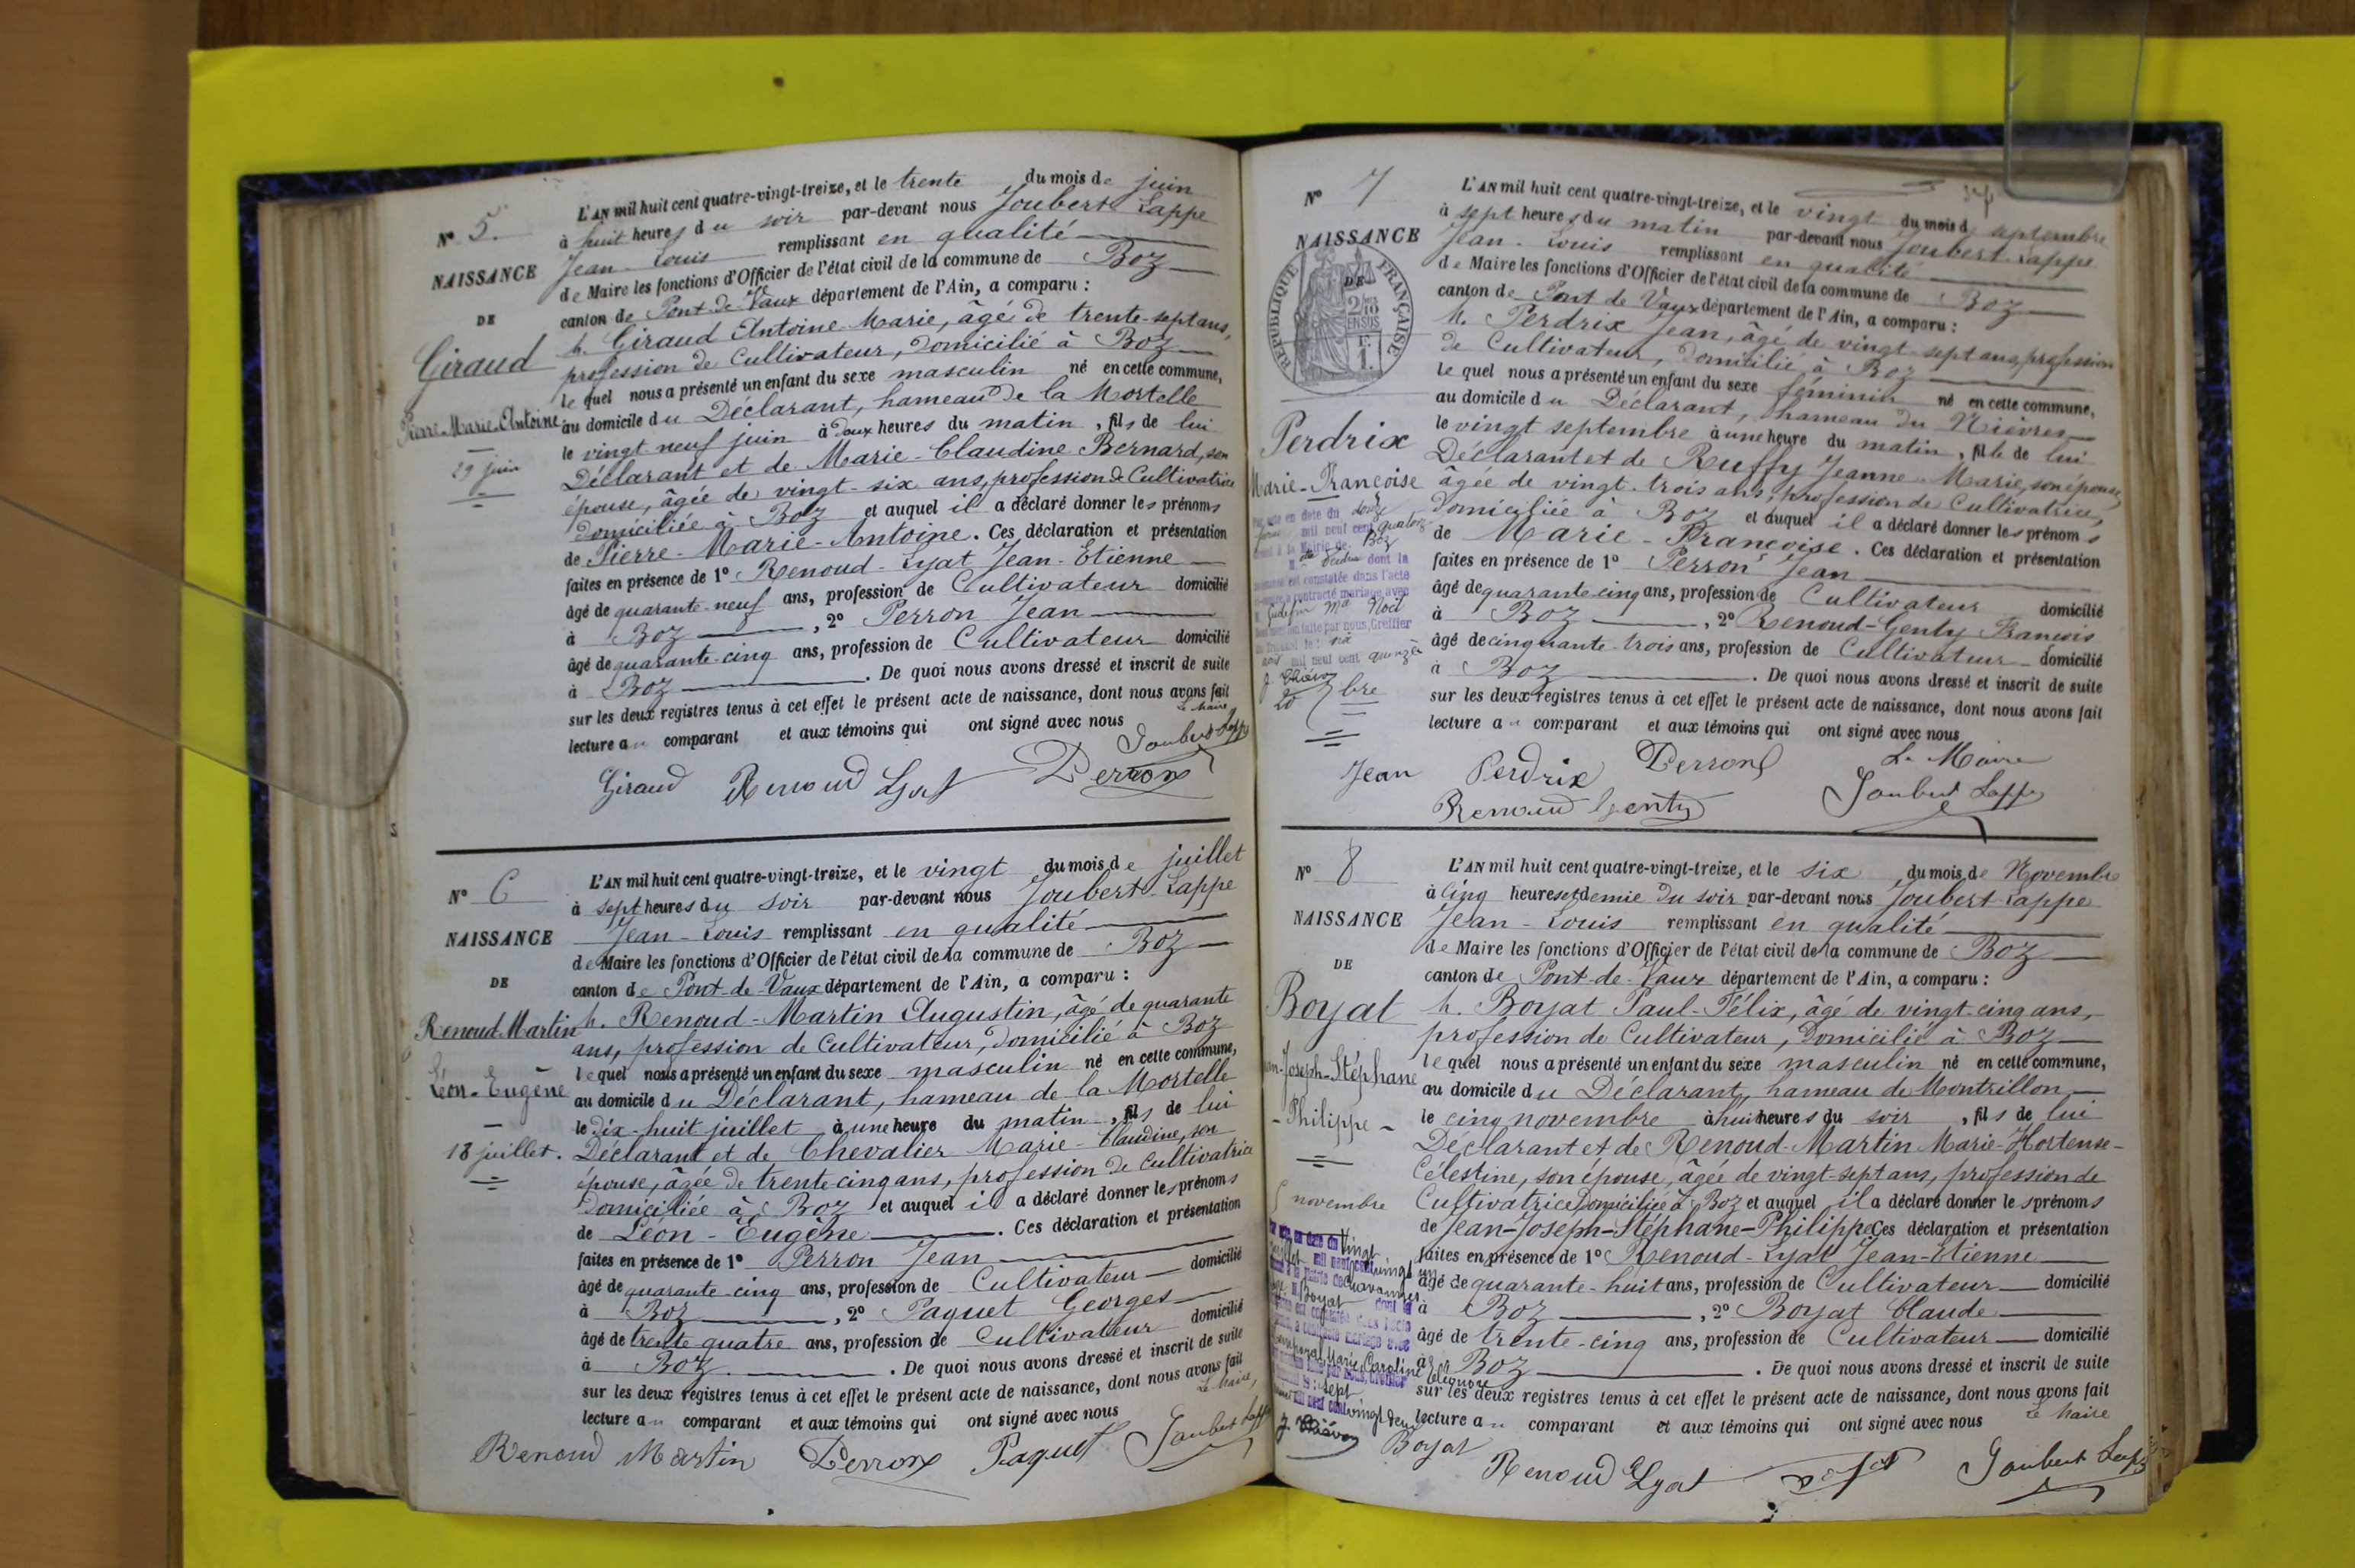 N° 5.
NAISSANCE
DE
Giraud
Pierre-Marie-Antoine
29 juin
L'AN mil huit cent quatre-vingt-treize, et le trente du mois de juin
à huit heures du soir par-devant nous Joubert-Lappe
Jean-Louis remplissant en qualité
de Maire les fonctions d'Officier de l'état civil de la commune de Boz
canton de Pont-de-Vaux département de l'Ain, a comparu :
h. Giraud Antoine Marie, âgé de trente-sept ans,
profession de Cultivateur, domicilié à Boz
lequel nous a présenté un enfant du sexe masculin né en cette commune,
au domicile du Déclarant, hameau de la Mortelle
le vingt neuf juin à deux heures du matin, fils de lui
Déclarant et de Marie-Claudine Bernard, son
épouse, âgée de vingt-six ans, profession de Cultivatrice
domiciliée à Boz et auquel il a déclaré donner les prénoms
de Pierre-Marie-Antoine. Ces déclaration et présentation
faites en présence de 1° Renoud-Lyat Jean-Etienne
âgé de quarante-neuf ans, profession de Cultivateur domicilié
à Boz, 2° Perron Jean
âgé de quarante-cinq ans, profession de Cultivateur domicilié
à Boz. De quoi nous avons dressé et inscrit de suite
sur les deux registres tenus à cet effet le présent acte de naissance, dont nous avons fait
lecture au comparant et aux témoins qui ont signé avec nous
Le Maire
Joubert Lappe
Giraud Renoud Lyat Perron
N° 6
NAISSANCE
DE
Renoud-Martin
Léon-Eugène
18 juillet.
L'AN mil huit cent quatre-vingt-treize, et le vingt du mois de juillet
à sept heures du soir par-devant nous Joubert-Lappe
Jean-Louis remplissant en qualité
de Maire les fonctions d'Officier de l'état civil de la commune de Boz
canton de Pont-de-Vaux département de l'Ain, a comparu :
h. Renoud-Martin Augustin, âgé de quarante
ans, profession de Cultivateur, domicilié à Boz
lequel nous a présenté un enfant du sexe masculin né en cette commune,
au domicile du Déclarant, hameau de la Mortelle
le dix-huit juillet à une heure du matin, fils de lui
Déclarant et de Chevalier Marie-Claudine, son
épouse, âgée de trente-cinq ans, profession de Cultivatrice
domiciliée à Boz et auquel il a déclaré donner les prénoms
de Léon-Eugène. Ces déclaration et présentation
faites en présence de 1° Perron Jean
âgé de quarante-cinq ans, profession de Cultivateur domicilié
à Boz, 2° Paquet Georges
âgé de trente-quatre ans, profession de Cultivateur domicilié
à Boz. De quoi nous avons dressé et inscrit de suite
sur les deux registres tenus à cet effet le présent acte de naissance, dont nous avons fait
lecture au comparant et aux témoins qui ont signé avec nous
Le Maire,
Renoud Martin Perron Paquet Joubert Lappe
N° 7
NAISSANCE
DE
RÉPUBLIQUE FRANÇAISE
2/10
EN SUS
F.
1.
Perdrix
Marie-Françoise
en date du douze
mil neuf cent quatorze
à la Mairie de Boz
dont la
est constatée dans l'acte
a contracté mariage avec
Noël
faite par nous, Greffier
mil neuf cent quinze
20 7bre
L'AN mil huit cent quatre-vingt-treize, et le vingt du mois de septembre
à sept heures du matin par-devant nous Joubert-Lappe
Jean-Louis remplissant en qualité
de Maire les fonctions d'Officier de l'état civil de la commune de Boz
canton de Pont de Vaux département de l'Ain, a comparu :
h. Perdrix Jean, âgé de vingt-sept ans, profession
de Cultivateur, domicilié à Boz
lequel nous a présenté un enfant du sexe féminin né en cette commune,
au domicile du Déclarant, hameau du Nièvres
le vingt septembre à une heure du matin, fille de lui
Déclarant et de Ruffy Jeanne-Marie, son épouse,
âgée de vingt-trois ans, profession de Cultivatrice,
domiciliée à Boz et auquel il a déclaré donner les prénoms
de Marie-Françoise. Ces déclaration et présentation
faites en présence de 1° Perron Jean
âgé de quarante-cinq ans, profession de Cultivateur domicilié
à Boz, 2° Renoud-Genty François
âgé de cinquante-trois ans, profession de Cultivateur domicilié
à Boz. De quoi nous avons dressé et inscrit de suite
sur les deux registres tenus à cet effet le présent acte de naissance, dont nous avons fait
lecture au comparant et aux témoins qui ont signé avec nous
Jean Perdrix Perron Le Maire
Renoud Genty Joubert Lappe
N° 8
NAISSANCE
DE
Boyat
Jean-Joseph-Stéphane
-Philippe-
5 novembre
en date du vingt
mil neuf cent vingt un
à la mairie de Chavannes
Boyat dont la
est constatée dans l'acte
a contracté mariage avec
Marie Caroline
par nous, Greffier
sept
mil neuf cent vingt deux
L'AN mil huit cent quatre-vingt-treize, et le six du mois de Novembre
à cinq heures et demie du soir par-devant nous Joubert-Lappe
Jean-Louis remplissant en qualité
de Maire les fonctions d'Officier de l'état civil de la commune de Boz
canton de Pont-de-Vaux département de l'Ain, a comparu :
h. Boyat Paul-Félix, âgé de vingt-cinq ans,
profession de Cultivateur, domicilié à Boz
lequel nous a présenté un enfant du sexe masculin né en cette commune,
au domicile du Déclarant, hameau de Montrillon
le cinq novembre à huit heures du soir, fils de lui
Déclarant et de Renoud-Martin Marie-Hortense-
Célestine, son épouse, âgée de vingt-sept ans, profession de
Cultivatrice, domiciliée à Boz et auquel il a déclaré donner les prénoms
de Jean-Joseph-Stéphane-Philippe Ces déclaration et présentation
faites en présence de 1° Renoud-Lyat Jean-Etienne
âgé de quarante-huit ans, profession de Cultivateur domicilié
à Boz, 2° Boyat Claude
âgé de trente-cinq ans, profession de Cultivateur domicilié
à Boz. De quoi nous avons dressé et inscrit de suite
sur les deux registres tenus à cet effet le présent acte de naissance, dont nous avons fait
lecture au comparant et aux témoins qui ont signé avec nous
Le Maire
Boyat Renoud Lyat Joubert Lappe